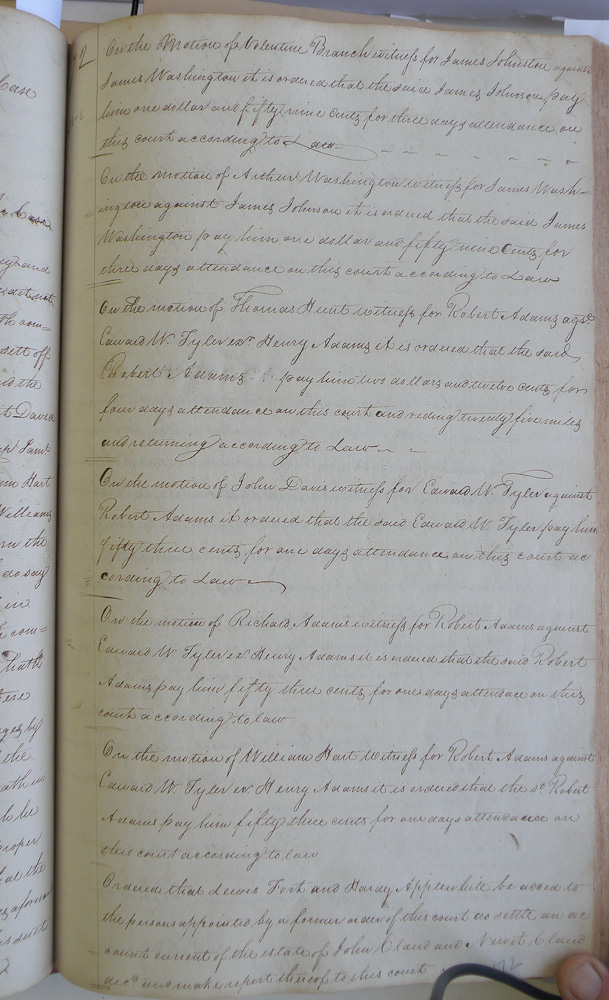 2 On the Motion of Valentine Branch witness for James Johnston against
James Washington it is ordered that the said James Johnson pay
him one dollar and fifty nine cents for three days attendance on
this court according to Law
On the motion of Arthur Washington witness for James Wash-
ington against James Johnson it is ordered that the said James
Washington pay him one dollar and fifty nine Cents for
three days attendance on this court according to Law
On the motion of Thomas Hunt witness for Robert Adams agst.
Edward W. Tyler exr Henry Adams it is ordered that the said
Robert Adams pay him two dollars and twelve cents for
four days attendance on this court and riding twenty five miles
and returning according to Law
On the motion of John Davis witness for Edward W. Tyler against
Robert Adams it ordered that the said Edward W. Tyler pay him
fifty three cents for one days attendance on this court ac
cording to Law
On the motion of Richard Adams witness for Robert Adams against
Edward W. Tyler exr Henry Adams it is ordered that the said Robert
Adams pay him fifty three cents for one days attendace on this
court according to law
On the motion of William Hart witness for Robert Adams against
Edward W. Tyler exr Henry Adams it is ordered that the sd. Robert
Adams pay him fifty three cents for one days attendance on
this court according to law
Ordered that Lewis Fort and Hardy Applewhite be added to
the persons appointed by a former order of this court to settle an ac
count current of the estate of John Eland and Eland
decd. and make report thereof to this court